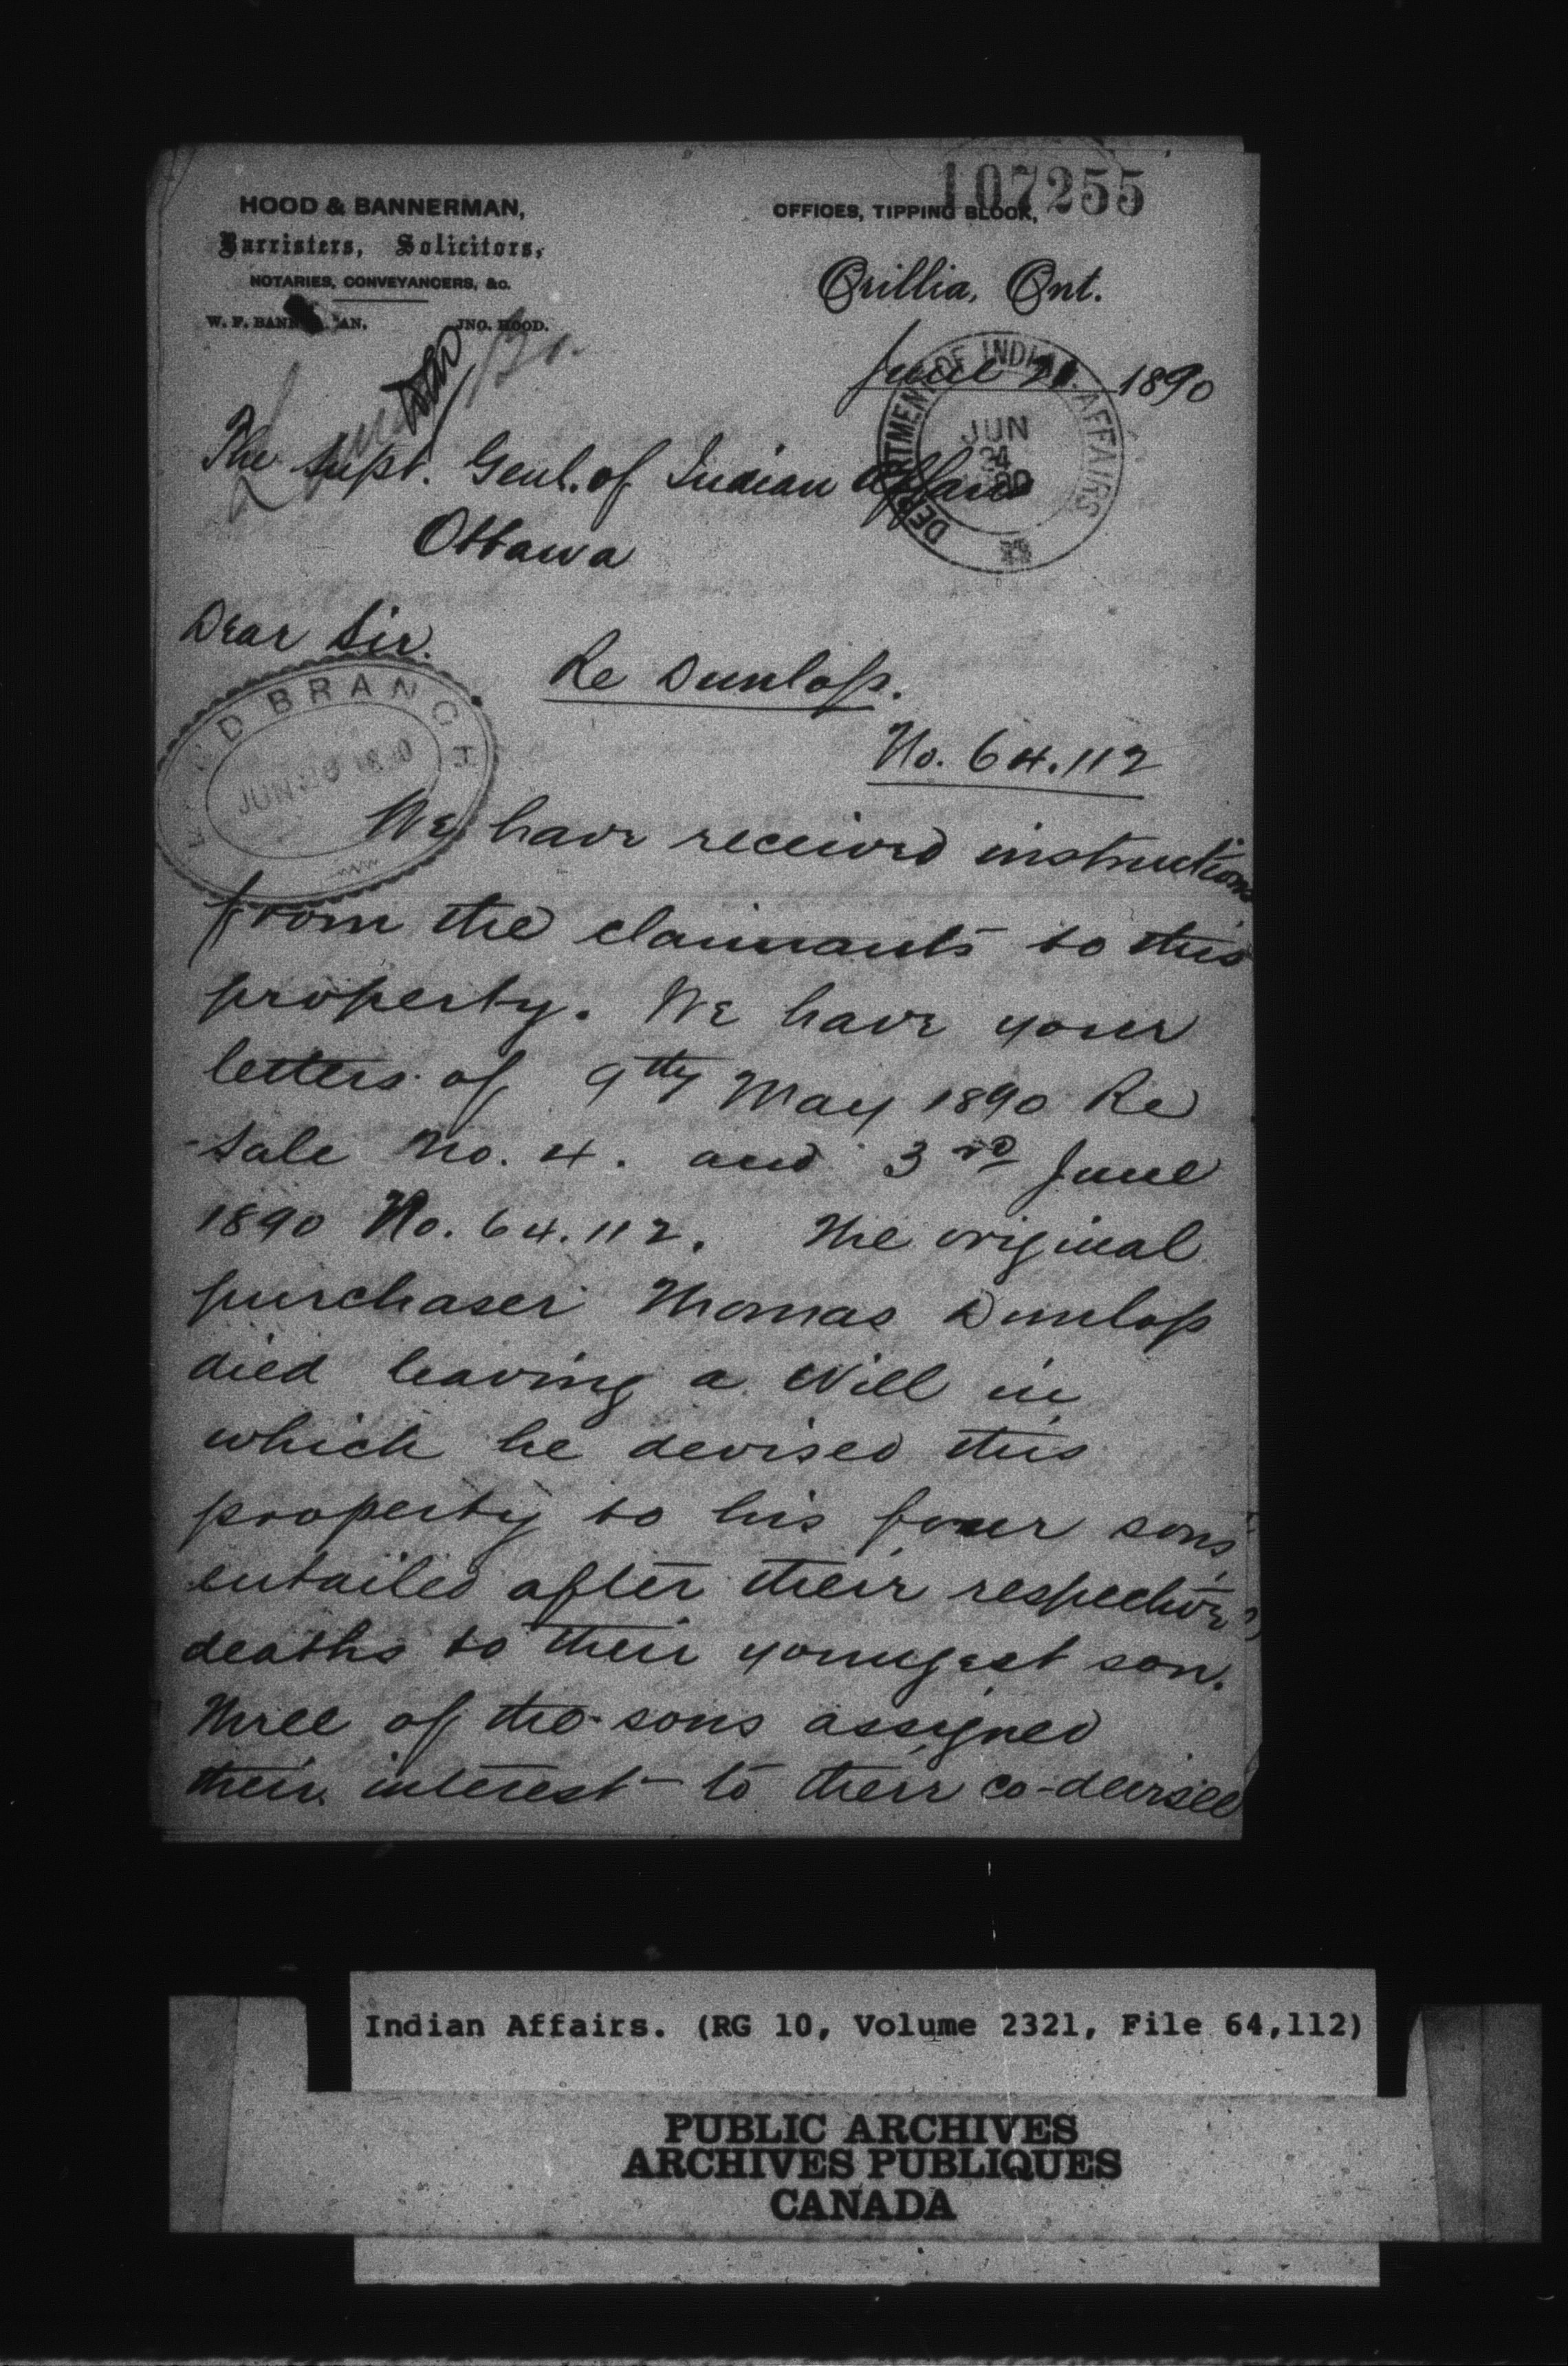 107255
HOOD & BANNERMAN,
Barristers, Solicitors,
NOTARIES, CONVEYANCERS, &c.
W. F. BANNERMAN. JNO. HOOD.
OFFICES, TIPPING BLOCK,
Orillia, Ont.
June 21 1890
DEPARTMENT OF INDIAN AFFAIRS
JUN
24
90
The Supt. Genl. of Indian Affairs
Ottawa
Dear Sir.
Re Dunlop.
No. 64.112
LAND BRANCH
JUN 1890
We have received instructions
from the claimants to this
property. We have your
letters of 9th May 1890 Re
Sale No. 4. and 3rd June
1890 No. 64.112. The original
purchaser Thomas Dunlop
died leaving a Will in
which he devised this
property to his four sons,
entailed after their respective
deaths to their youngest son.
Three of the sons assigned
their interest to their co-devisee
Indian Affairs. (RG 10, Volume 2321, File 64,112)
PUBLIC ARCHIVES
ARCHIVES PUBLIQUES
CANADA